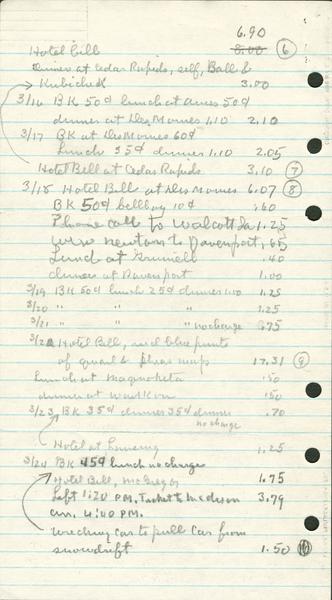 6.90
Hotel bill 8.00 6
Dinner at Cedar Rapids, self, Ball &
Kubichek 3.00
3/16 BK 50¢ lunch at Ames 50¢
dinner at Des Moines 1.10 2.10
3/17 BK at Des Moines 60¢
lunch 35¢ dinner 1.10 2.05
Hotel Bell at Cedar Rapids 3.10 7
3/18 Hotel Bell at Des Moines 6.07 8
BK 50¢ bellboy 10¢ .60
Phone call to Walcott Ia 1.25
Wire Newton to Davenport .65
Lunch at Grinnell .40
dinner at Davenport 1.00
3/19 BK 50¢ lunch 25¢ dinner 1.25
3/20 " " " 1.25
3/21 " " " no charge .75
3/22 Hotel Bill, and blue prints
of quad & phas map 17.31 9
Lunch at Maquoketa .50
dinner at Waukon .50
3/23 BK 35¢ dinner 35¢ dinner .70
no charge
Hotel at Lansing 1.25
3/24 BK 45¢ lunch no charge
Hotel Bill, McGregor 1.75
Left 1:20 P.M. Ticket to Madison 3.79
arr. 4:00 P.M.
Wrecking car to pull car from
snowdrift 1.50 10